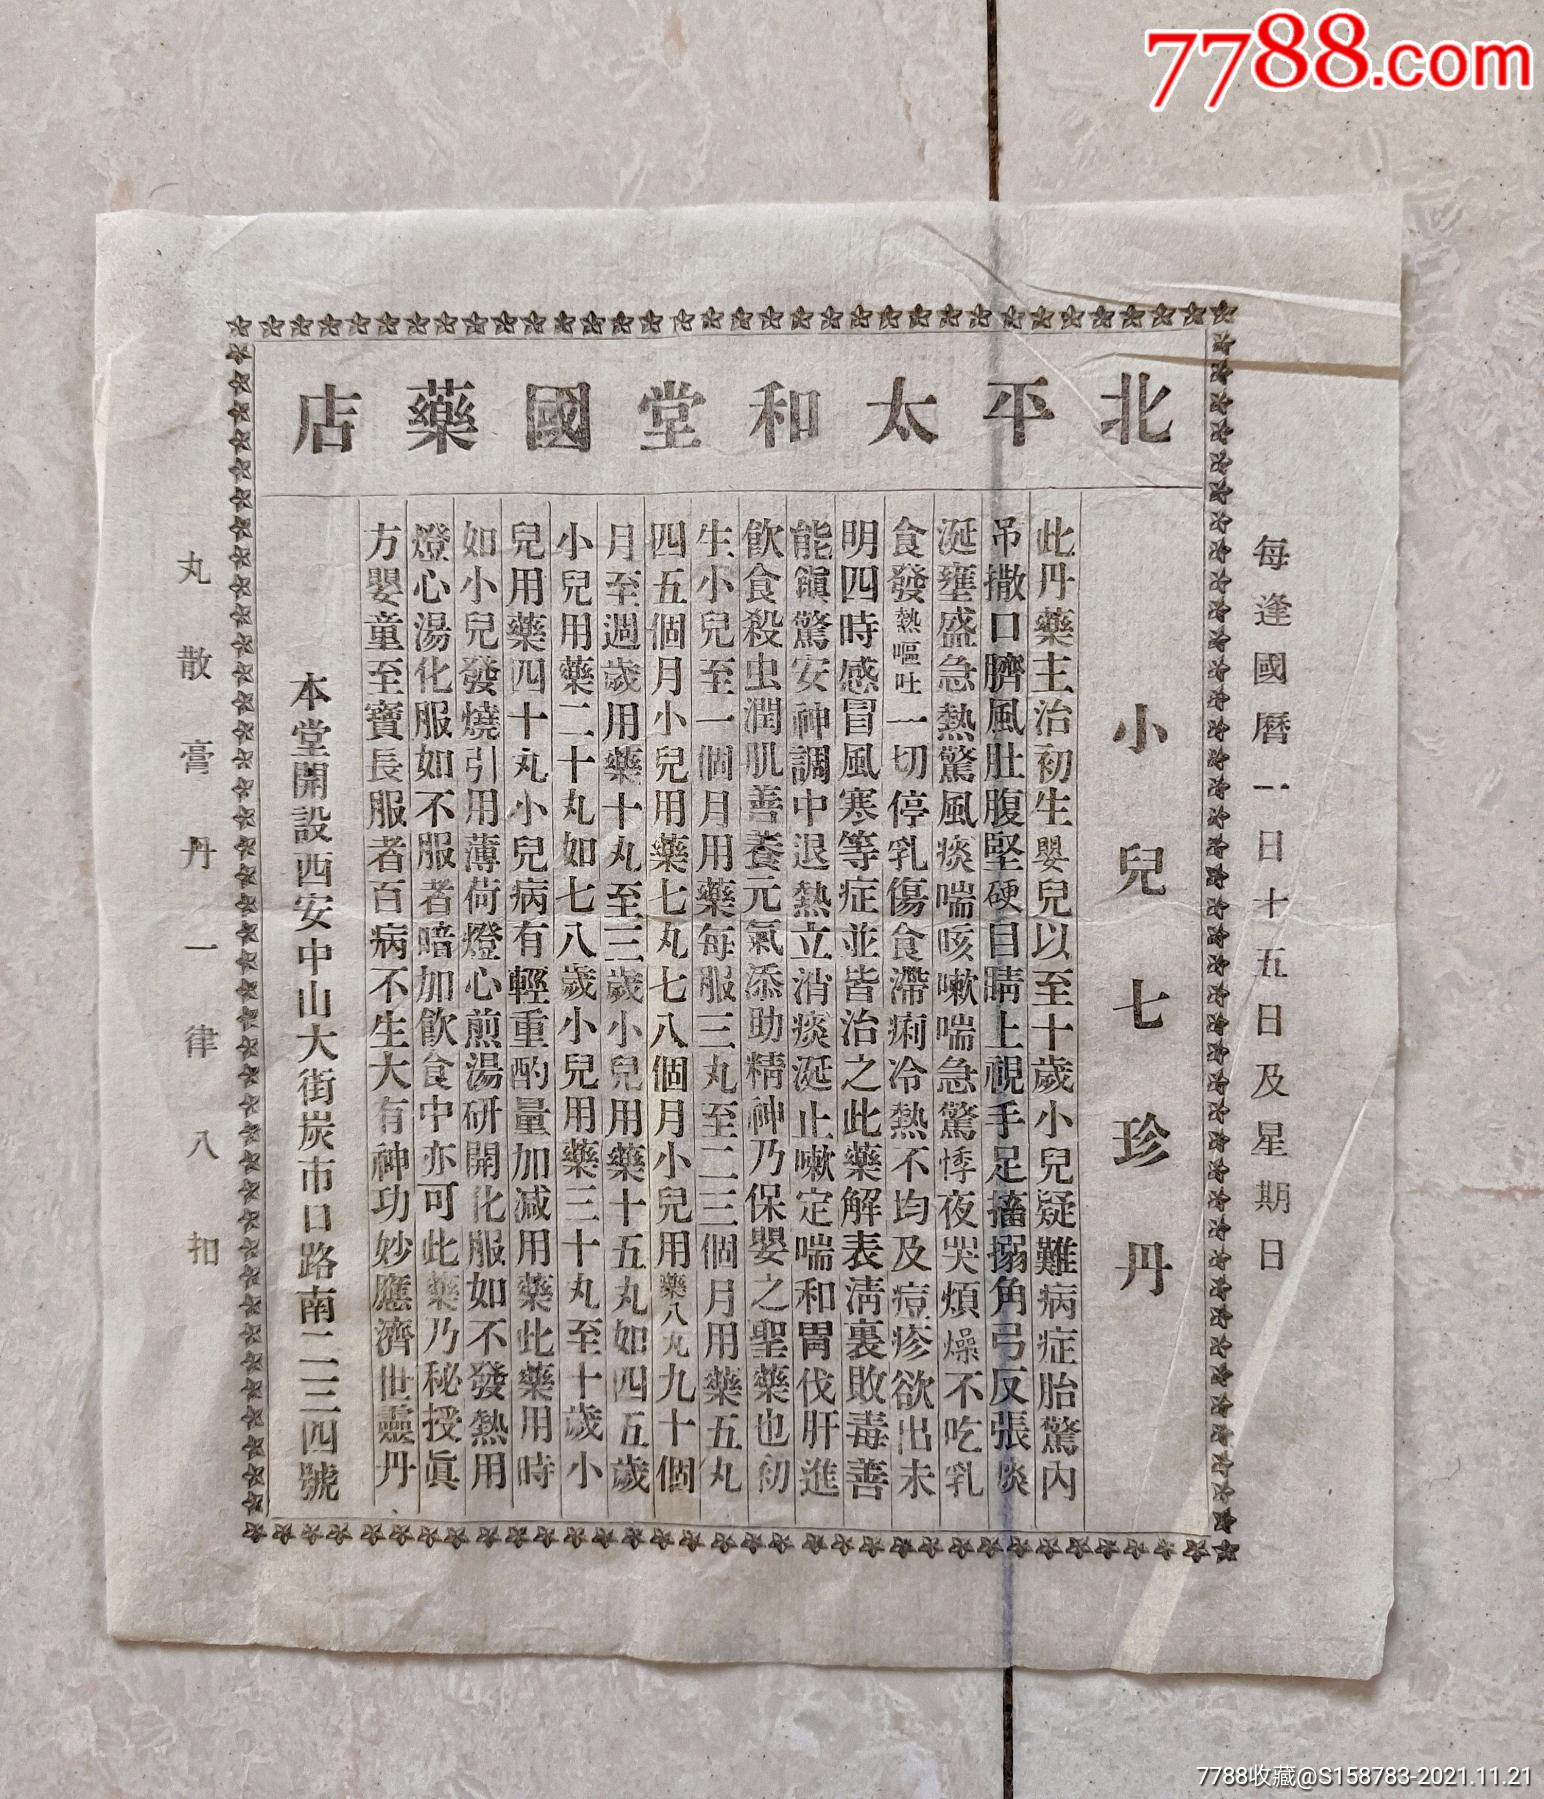 7788.com
北平太和堂國藥店
每逢國曆一日十五日及星期日
小兒七珍丹
此丹藥主治初生嬰兒以至十歲小兒疑難病症胎驚內
吊撒口臍風肚腹堅硬目睛上視手足搐搦角弓反張痰
涎壅盛急熱驚風痰喘咳嗽喘急驚悸夜哭煩燥不吃乳
食發熱嘔吐一切停乳傷食滯痢冷熱不均及痘疹欲出未
明四時感冒風寒等症並皆治之此藥解表淸裏敗毒善
能鎭驚安神調中退熱立消痰涎止嗽定喘和胃伐肝進
飲食殺虫潤肌善養元氣添助精神乃保嬰之聖藥也初
生小兒至一個月用藥每服三丸至二三個月用藥五丸
四五個月小兒用藥七丸七八個月小兒用藥八丸九十個
月至週歲用藥十丸至三歲小兒用藥十五丸如四五歲
小兒用藥二十丸如七八歲小兒用藥三十丸至十歲小
兒用藥四十丸小兒病有輕重酌量加減用藥此藥用時
如小兒發燒引用薄荷燈心煎湯研開化服如不發熱用
燈心湯化服如不服者暗加飲食中亦可此藥乃秘授眞
方嬰童至寶長服者百病不生大有神功妙應濟世靈丹
本堂開設西安中山大街炭市口路南二三四號
丸散膏丹一律八扣
7788收藏@S158783-2021.11.21